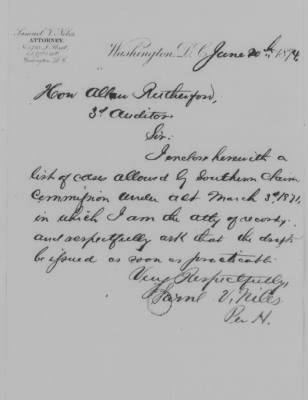 Samuel V. Niles
ATTORNEY,
Washington, D. C.
Washington, D. C. June 20th, 1874
Hon Allan Rutherford,
3d Auditor
Sir:
I enclose herewith a
list of cases allowed by Southern Claim
Commission under act March 3d 1871,
in which I am the atty of record,
and respectfully ask that the drafts
be issued as soon as practicable
Very Respectfully,
Saml V. Niles
Per H.